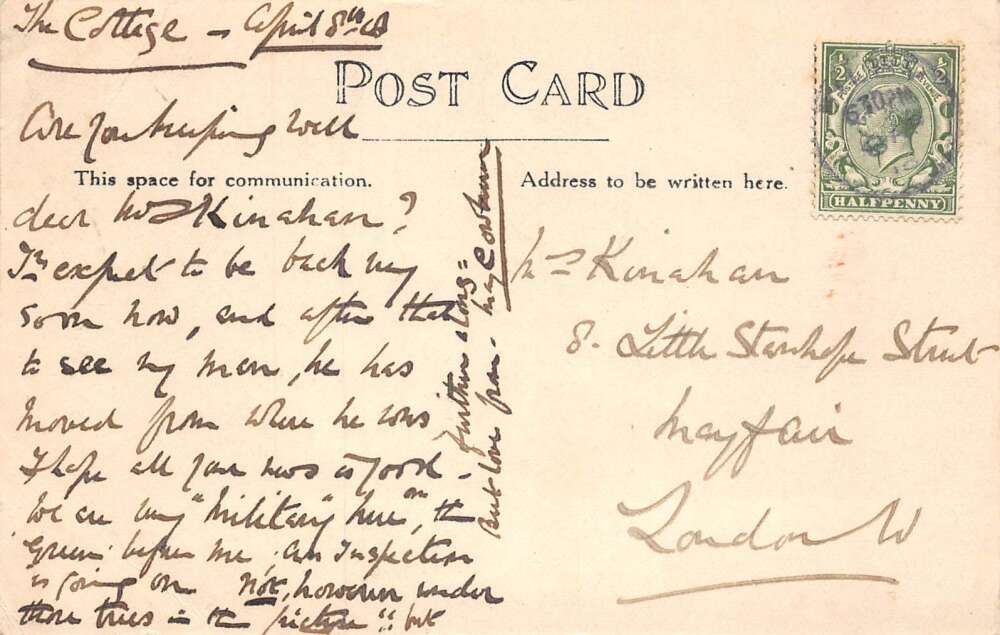 The Cottage - April 8th
POST CARD
Are you keeping well
This space for communication.
dear Mrs Kinahan?
I'm expect to be back my
soon now, and after that
to see my man, he has
moved from where he was
I hope all your news is good -
We are very "Military" here, on the
Green before me, an Inspection
is going on Not, however under
those trees in the picture!! but
further along=
Best love from -
Address to be written here.
½ ½
HALFPENNY
Mrs Kinahan
8. Little Stanhope Street
Mayfair
London W